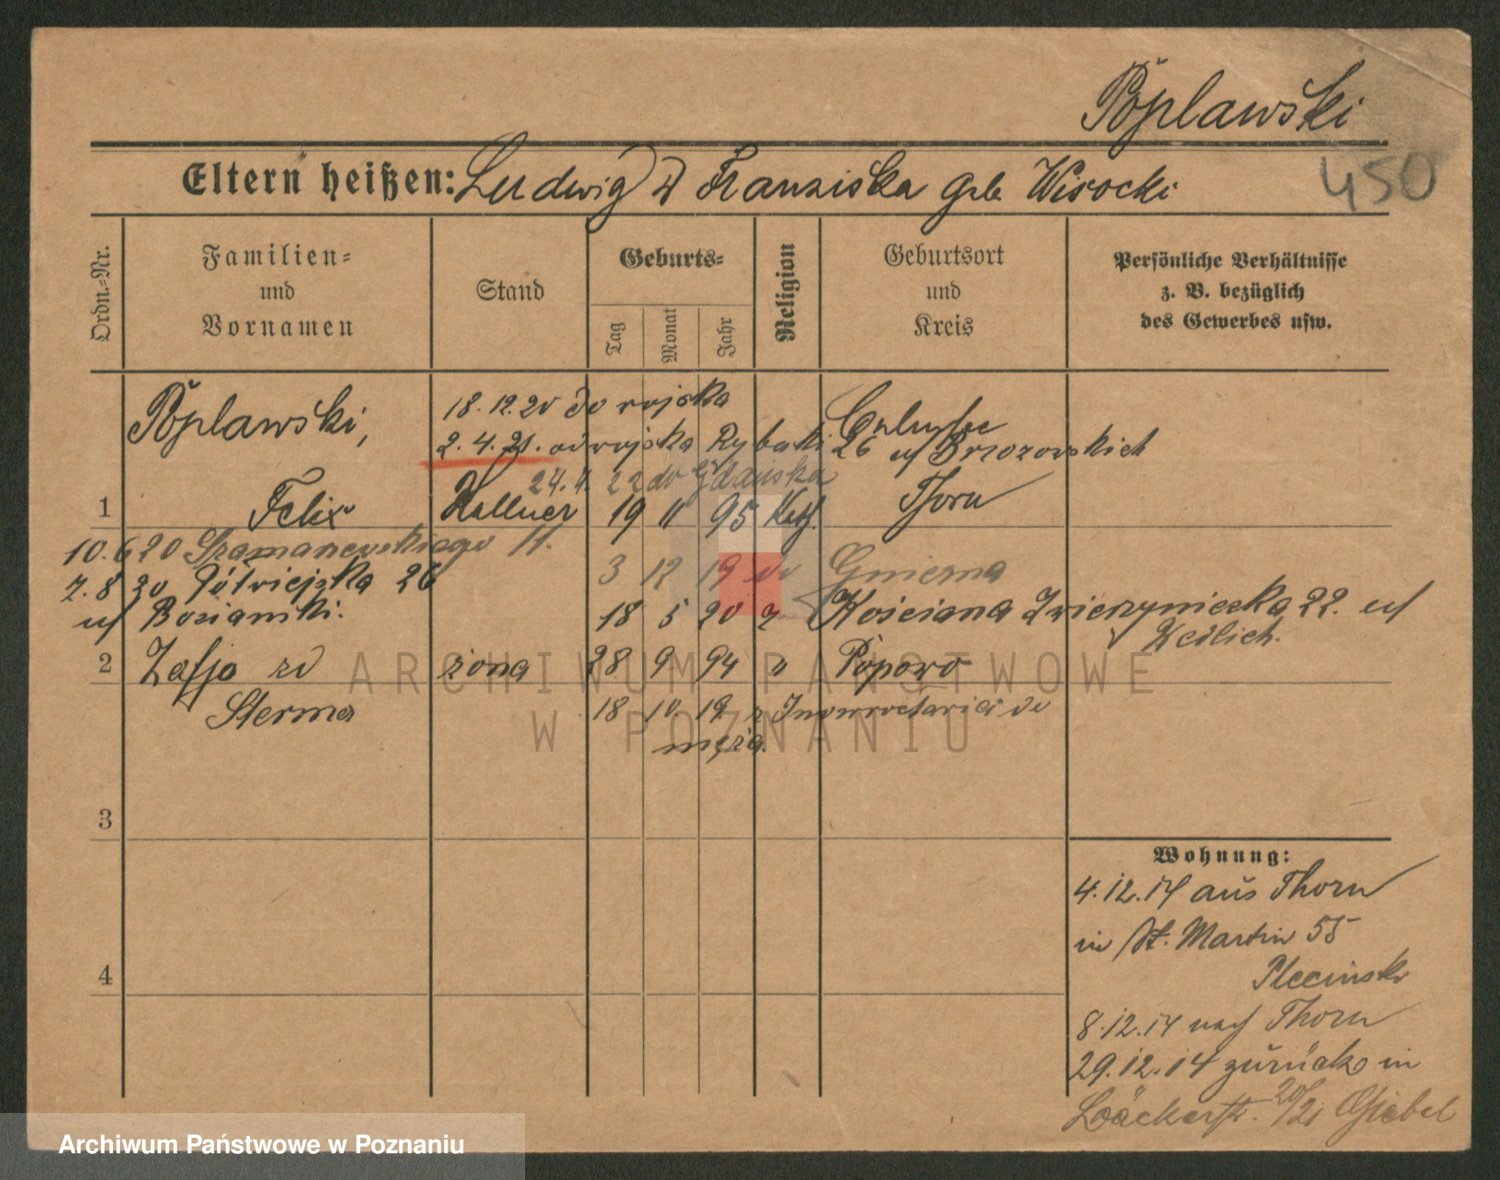 Poplawski
450
Eltern heißen: Ludwig u Franziska geb. Wisocki
Ordn.-Nr.
Familien-
und
Vornamen
Stand
Geburts-
Tag
Monat
Jahr
Religion
Geburtsort
und
Kreis
Persönliche Verhältnisse
z. B. bezüglich
des Gewerbes usw.
Poplawski,
18.12.20 do wojska
2.4.21. od wojska Rybaki 26 u/ Brzozowskich
24.4. 22 do Gdańska
1 Felix Kellner 19 11 95 Kath. Thorn
10.6.20 Szamarzewskiego 11.
3 12 19 do Gniezna
7.8.20 Półwiejska 26
u/ Bosiamki.
18 5 20 z Kościana Zwierzyniecka 22. u/
2 Zofja zd żona 28 9 94 " Popowo
Sterma
18 10 19 z Inowrocławia do
męża.
3
4
Wohnung:
4.12.14 aus Thorn
in St. Martin 55
Plecinski
8.12.14 nach Thorn
29.12.14 zurück in
Bäckerstr. 20/21 Giebel
ARCHIWUM PAŃSTWOWE
W POZNANIU
Archiwum Państwowe w Poznaniu